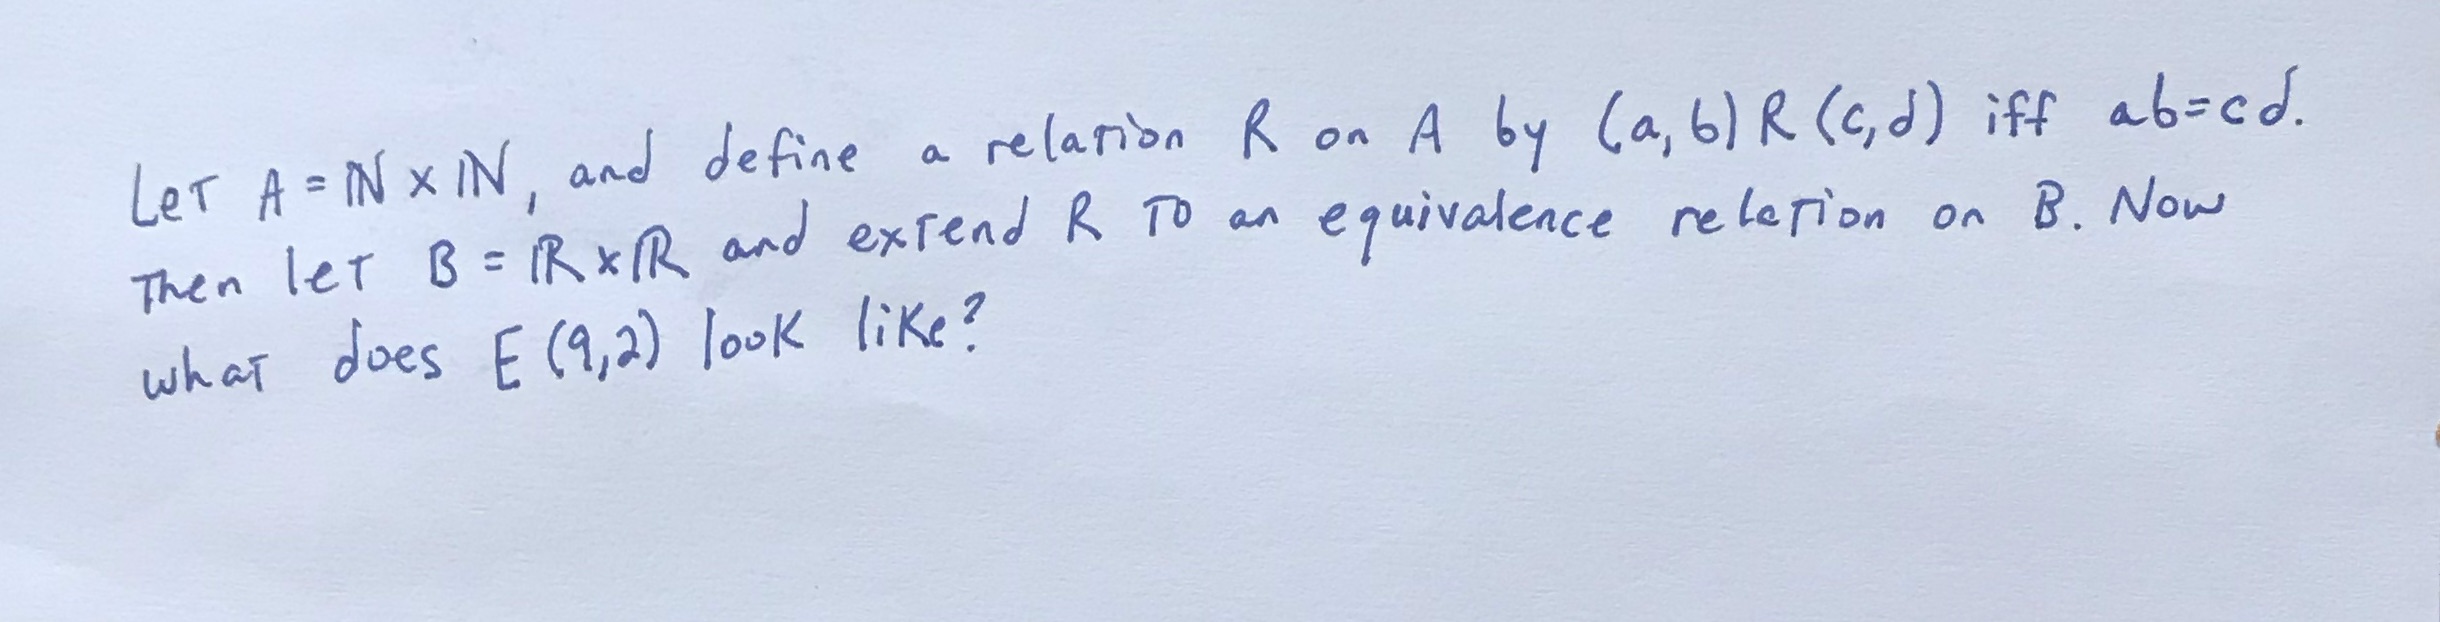 Let A = ℕ × ℕ, and define a relation R on A by (a,b) R (c,d) iff ab=cd.
Then let B = ℝ × ℝ and extend R to an equivalence relation on B. Now
what does E (9,2) look like?